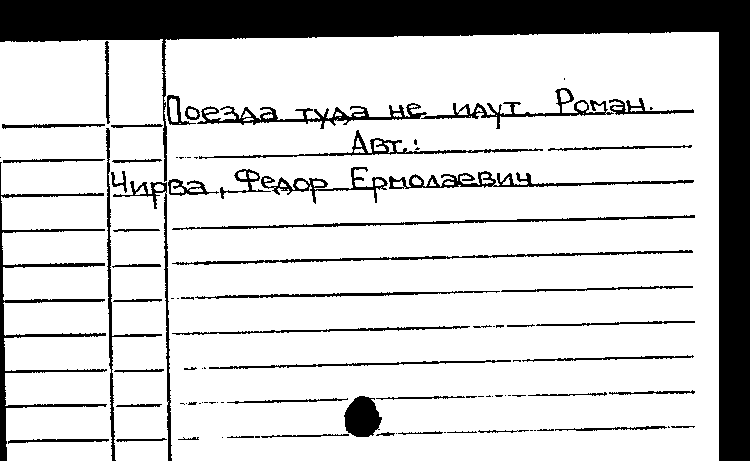 Поезда туда не идут. Роман.
Авт.:
Чирва, Федор Ермолаевич